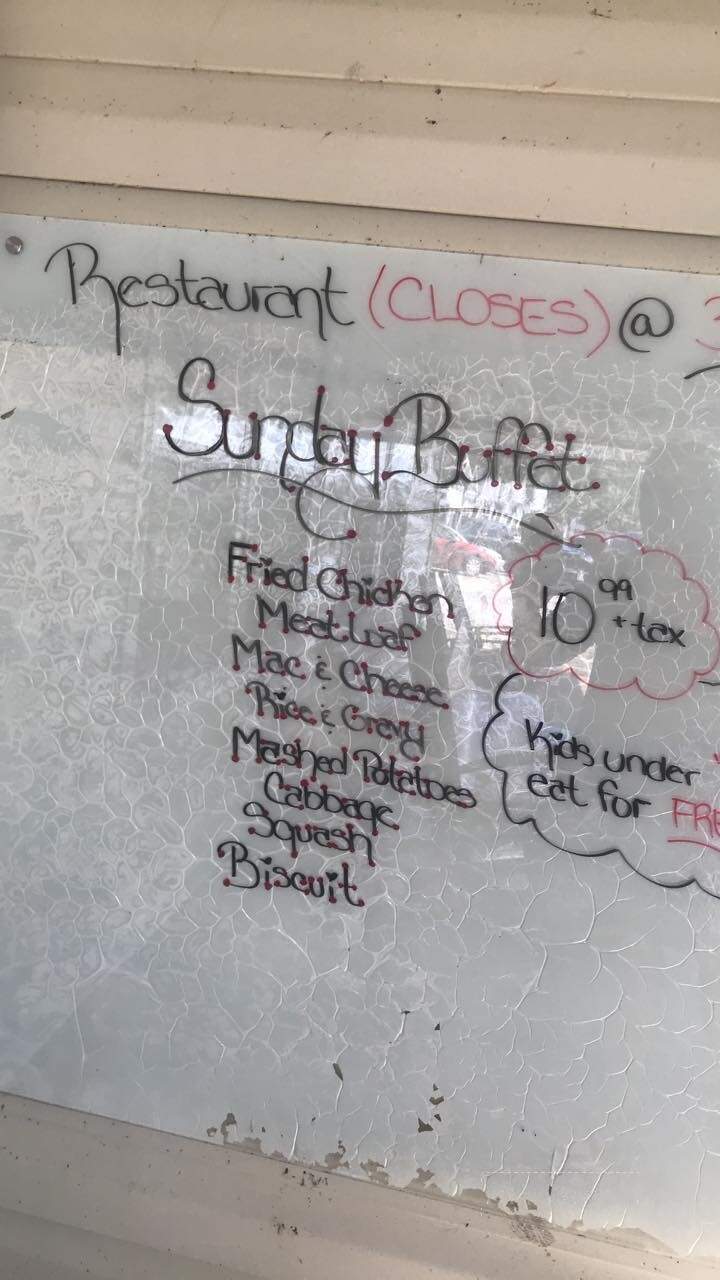 Restaurant (CLOSES) @
Sunday Buffet
Fried Chicken
Meatloaf
Mac & Cheese
Rice & Gravy
Mashed Potatoes
Cabbage
Squash
Biscuit
10 99
+ tax
Kids under
eat for